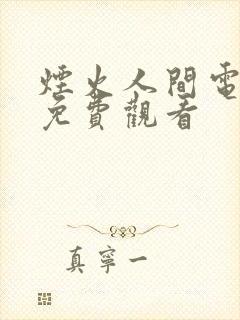 煙火人間電
免費觀看
真寧一